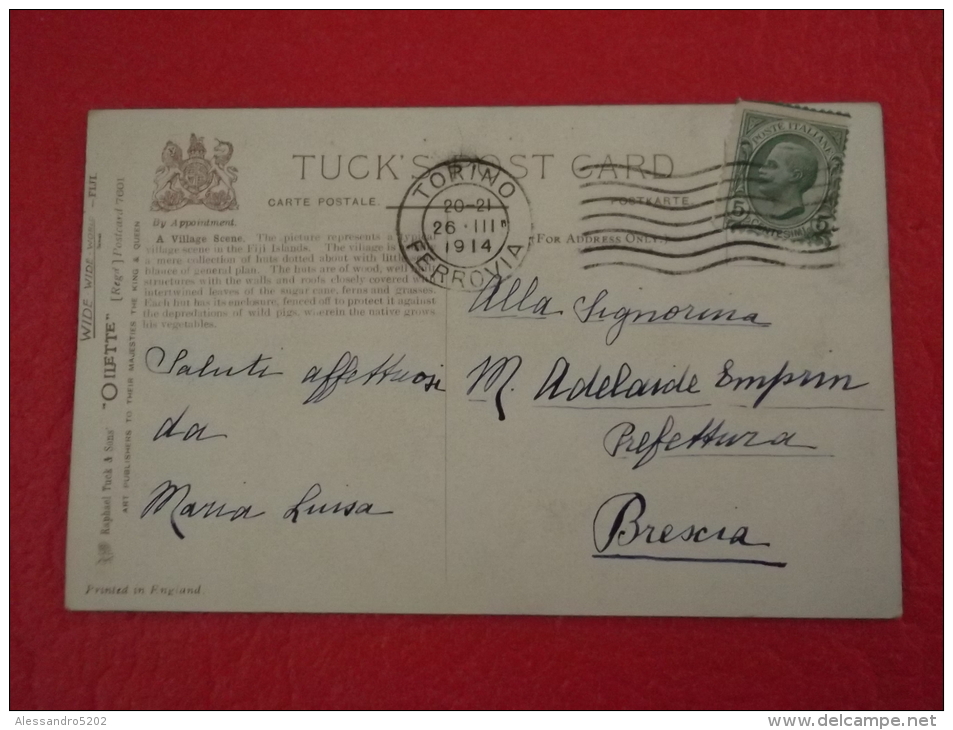 TUCK'S POST CARD
CARTE POSTALE.
POSTKARTE.
By Appointment.
(FOR ADDRESS ONLY.)
A Village Scene. The picture represents a typical
village scene in the Fiji Islands. The village is
a mere collection of huts dotted about with little
blance of general plan. The huts are of wood, well
structures with the walls and roofs closely covered with
intertwined leaves of the sugar cane, ferns and grasses.
Each hut has its enclosure, fenced off to protect it against
the depredations of wild pigs, wherein the native grows
his vegetables.
WIDE WIDE WORLD - FIJI.
"OILETTE" [Regd.] Postcard 7001
Raphael Tuck & Sons'
ART PUBLISHERS TO THEIR MAJESTIES THE KING & QUEEN
Printed in England.
TORINO
20-21
26·III
1914
FERROVIA
POSTE ITALIANE
5 CENTESIMI 5
Saluti affettuosi
da
Maria Luisa
Alla Signorina
M. Adelaide
Prefettura
Brescia
Alessandro5202
www.delcampe.net